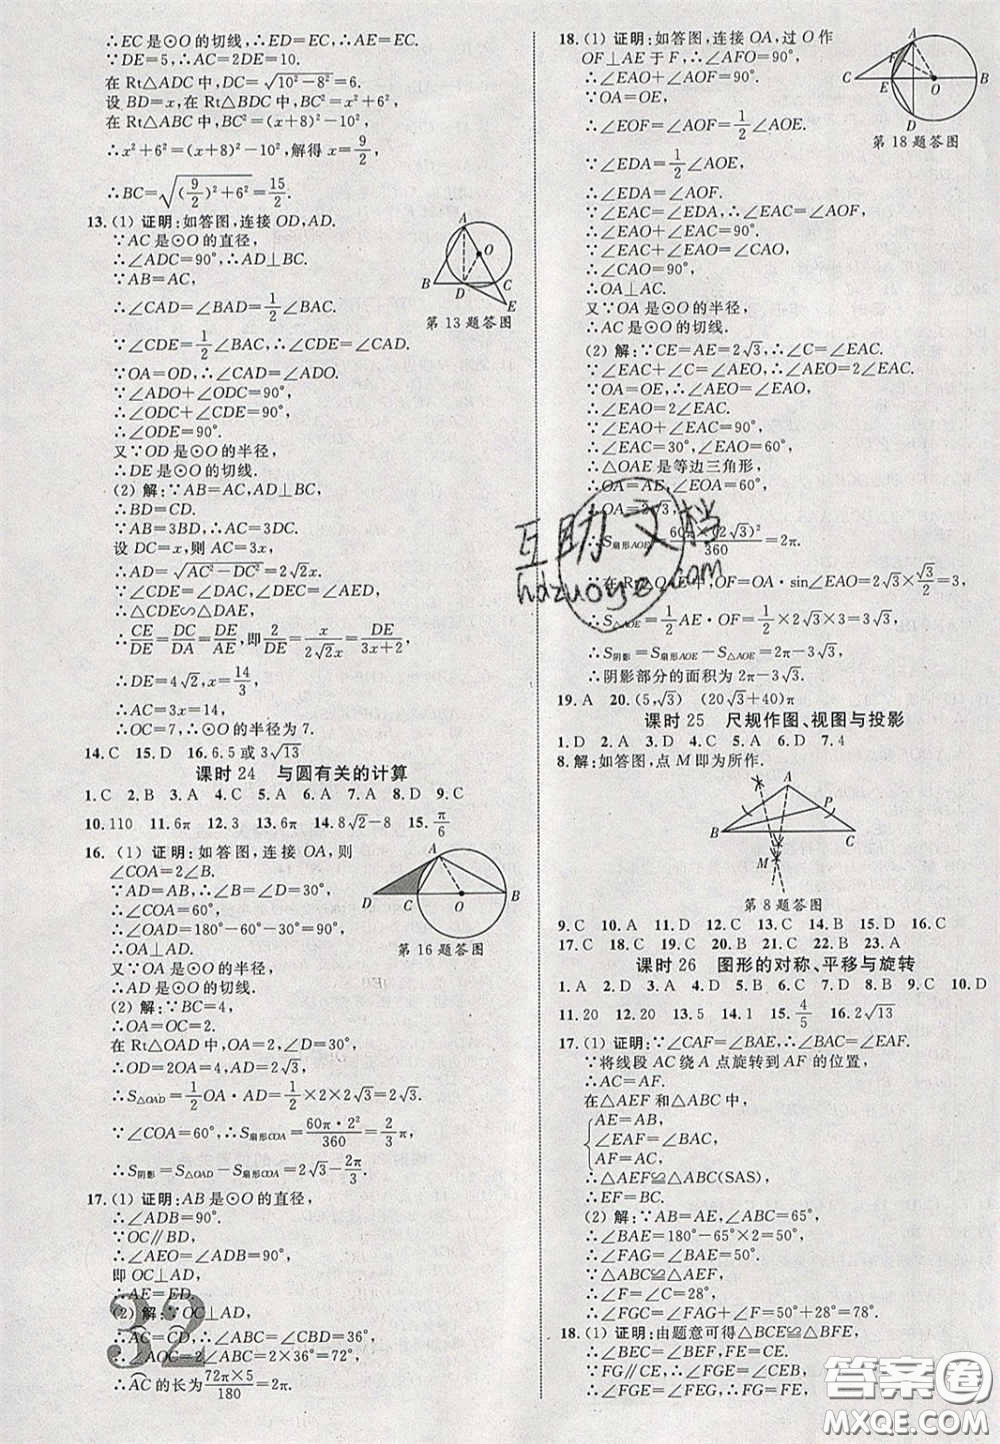 ∴EC是⊙O的切线,∴ED=EC,∴AE=EC.
∵DE=5,∴AC=2DE=10.
在Rt△ADC中,DC=√(10²-8²)=6.
设BD=x,在Rt△BDC中,BC²=x²+6²,
在Rt△ABC中,BC²=(x+8)²-10²,
∴x²+6²=(x+8)²-10²,解得x=9/2,
∴BC=√((9/2)²+6²)=15/2.
13.(1)证明:如答图,连接OD,AD.
∵AC是⊙O的直径,
∴∠ADC=90°,∴AD⊥BC.
∵AB=AC,
∴∠CAD=∠BAD=1/2∠BAC.
∵∠CDE=1/2∠BAC,∴∠CDE=∠CAD.
∵OA=OD,∴∠CAD=∠ADO.
∵∠ADO+∠ODC=90°,
∴∠ODC+∠CDE=90°,
∴∠ODE=90°.
又∵OD是⊙O的半径,
∴DE是⊙O的切线.
(2)解:∵AB=AC,AD⊥BC,
∴BD=CD.
∵AB=3BD,∴AC=3DC.
设DC=x,则AC=3x,
∴AD=√(AC²-DC²)=2√2x.
∵∠CDE=∠CAD,∠DEC=∠AED,
∴△CDE∽△DAE,
∴CE/DE=DC/DA=DE/AE,即2/DE=x/(2√2x)=DE/(3x+2),
∴DE=4√2,x=14/3,
∴AC=3x=14,
∴OC=OD=7,∴⊙O的半径为7.
A O B D C E
第13题答图
14.C 15.D 16.6.5或3√13
课时24 与圆有关的计算
1.C 2.B 3.A 4.C 5.A 6.A 7.A 8.D 9.C
10.110 11.6π 12.3 13.6π 14.8√2-8 15.π/6
16.(1)证明:如答图,连接OA,则
∠COA=2∠B.
∵AD=AB,∴∠B=∠D=30°,
∴∠COA=60°,
∴∠OAD=180°-60°-30°=90°,
∴OA⊥AD.
又∵OA是⊙O的半径,
∴AD是⊙O的切线.
(2)解:∵BC=4,
∴OA=OC=2.
在Rt△OAD中,OA=2,∠D=30°,
∴OD=2OA=4,AD=2√3,
∴S△OAD=1/2OA·AD=1/2×2×2√3=2√3.
∵∠COA=60°,∴S扇形COA=60π·2²/360=2π/3,
∴S阴影=S△OAD-S扇形COA=2√3-2π/3.
A D C O B
第16题答图
17.(1)证明:∵AB是⊙O的直径,
∴∠ADB=90°.
∵OC∥BD,
∴∠AEO=∠ADB=90°,
即OC⊥AD,
∴AE=ED.
(2)解:∵OC⊥AD,
∴∠ABC=∠CBD=36°,
∴∠AOC=2∠ABC=2×36°=72°,
∴AC的长为72π×5/180=2π.
32
18.(1)证明:如答图,连接OA,过O作
OF⊥AE于F,∴∠AFO=90°,
∴∠EAO+∠AOF=90°.
∵OA=OE,
∴∠EOF=∠AOF=1/2∠AOE.
∵∠EDA=1/2∠AOE,
∴∠EDA=∠AOF.
∵∠EAC=∠EDA,∴∠EAC=∠AOF,
∴∠EAO+∠EAC=90°.
∵∠EAC+∠EAO=∠CAO,
∴∠CAO=90°,
∴OA⊥AC.
又∵OA是⊙O的半径,
∴AC是⊙O的切线.
(2)解:∵CE=AE=2√3,∴∠C=∠EAC.
∵∠EAC+∠C=∠AEO,
∴∠AEO=2∠EAC.
∵OA=OE,∴∠AEO=∠EAO,
∴∠EAO=2∠EAC.
∵∠EAO+∠EAC=90°,
∴∠EAC=30°,∠EAO=60°,
∴△OAE是等边三角形,
∴OA=AE,∠EOA=60°,
∴OA=2√3,
∴S扇形AOE=60π×(2√3)²/360=2π.
∴在Rt△OAF中,OF=OA·sin∠EAO=2√3×√3/2=3,
∴S△AOE=1/2AE·OF=1/2×2√3×3=3√3,
∴S阴影=S扇形AOE-S△AOE=2π-3√3,
∴阴影部分的面积为2π-3√3.
A F C E O B D
第18题答图
19.A 20.(5,√3) (20√3+40)π
课时25 尺规作图、视图与投影
1.D 2.A 3.D 4.C 5.A 6.D 7.4
8.解:如答图,点M即为所作.
A P B C M
第8题答图
9.C 10.A 11.D 12.C 13.C 14.B 15.D 16.C
17.C 18.C 19.B 20.D 21.C 22.B 23.A
课时26 图形的对称、平移与旋转
1.A 2.D 3.A 4.C 5.A 6.D 7.A 8.C 9.C 10.D
11.20 12.20 13.5 14.1 15.4/5 16.2√13
17.(1)证明:∵∠CAF=∠BAE,∴∠BAC=∠EAF.
∵将线段AC绕A点旋转到AF的位置,
∴AC=AF.
在△AEF和△ABC中,
AE=AB,
∠EAF=∠BAC,
AF=AC,
∴△AEF≌△ABC(SAS),
∴EF=BC.
(2)解:∵AB=AE,∠ABC=65°,
∴∠BAE=180°-65°×2=50°,
∴∠FAG=∠BAE=50°.
∵△ABC≌△AEF,
∴∠F=∠C=28°,
∴∠FGC=∠FAG+∠F=50°+28°=78°.
18.(1)证明:由题意可得△BCE≌△BFE,
∴∠BEC=∠BEF,FE=CE.
∵FG∥CE,∴∠FGE=∠CEB,
∴∠FGE=∠FEG,∴FG=FE,
互助文档
huzuoye.com
答案圈
MXQE.COM